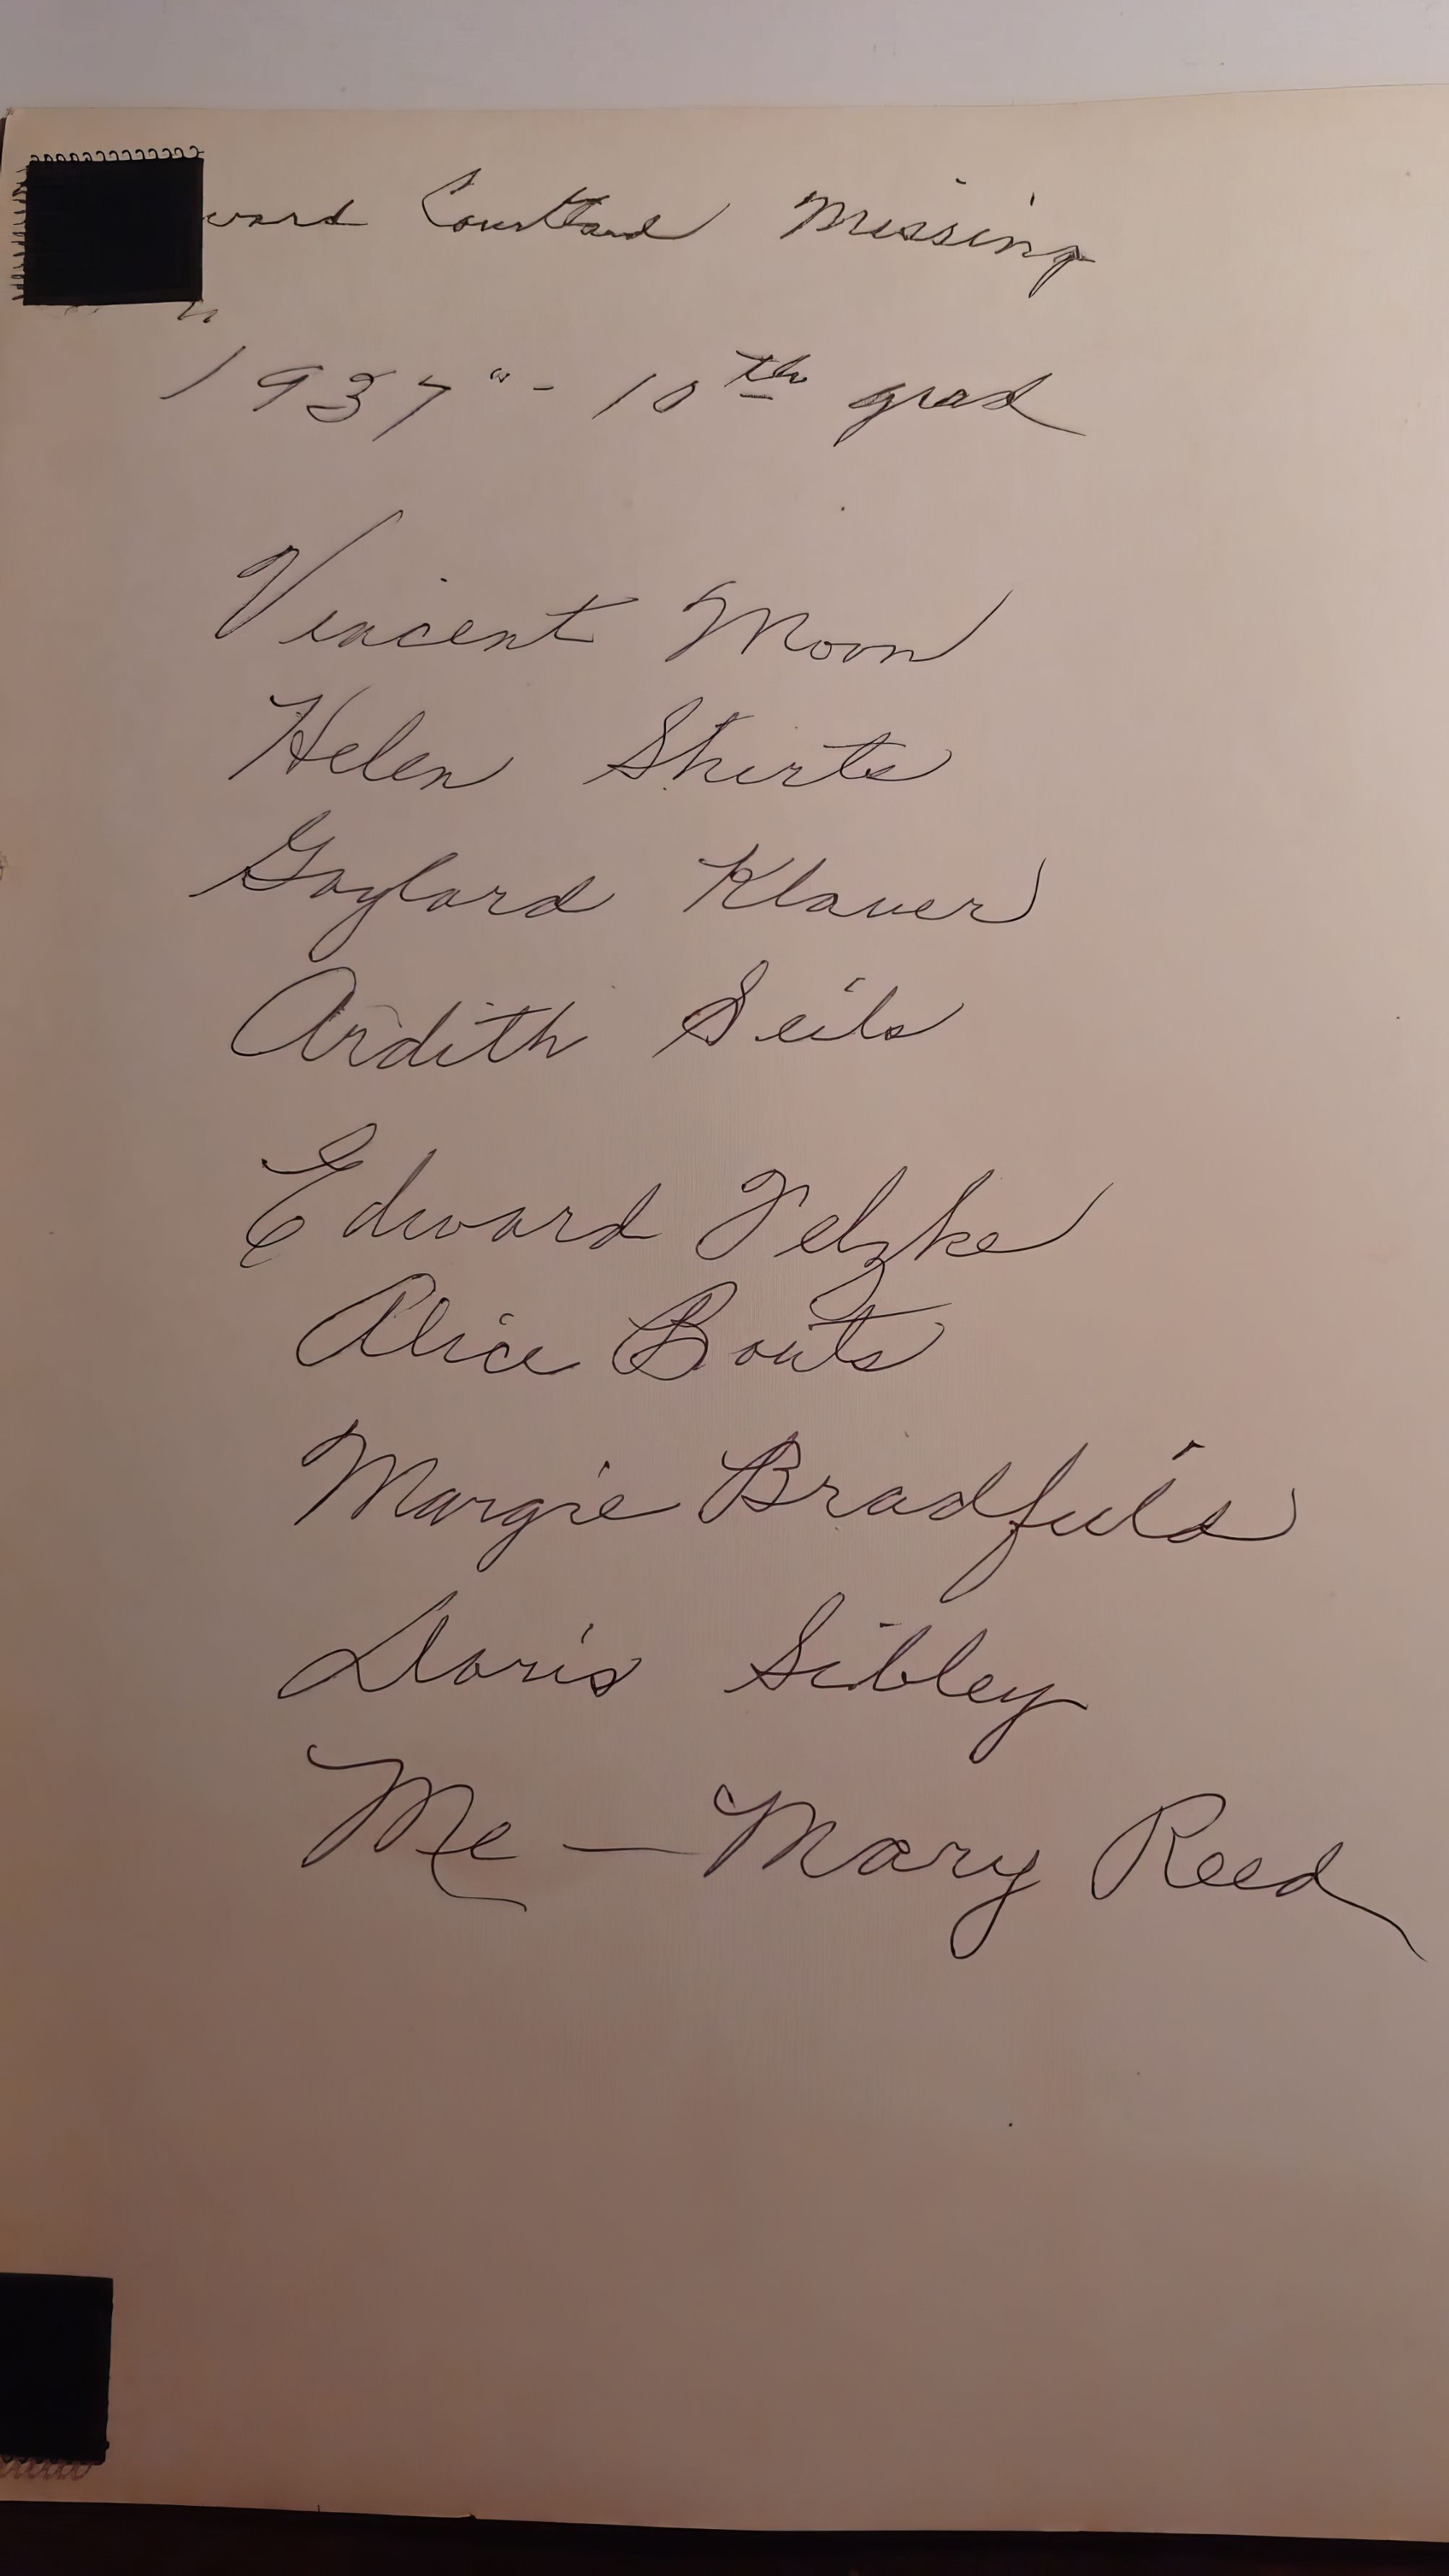 ward Courtland Missing
"
1937" - 10th grad
Vincent Moon
Helen Shirts
Gaylard Klaver
Ardith Seils
Edward Felzke
Alice Bouts
Margie Bradfield
Doris Sibley
Me — Mary Reed